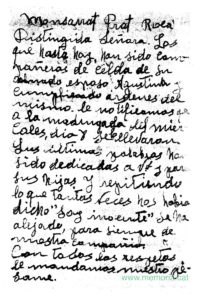 Monsarrat Prat Roca
Distinguida Señora. Los
que Hasta Hoy, han sido com-
pañeros de celda de su
esposo Agustin
cumplimos ordenes del
mismo, le notificamos
a la madrugada del miér-
coles, dia se llevaron
Sus ultimas palabras han
sido dedicadas a Vd y por
sus Hijas, y repitiendo
lo que tantas veces nos habia
dicho "Soy inocente" se ha
alejado, para siempre de
nuestra compañia.
Con todos los respetos
le mandamos nuestro pé-
same.
www.memorial.cat